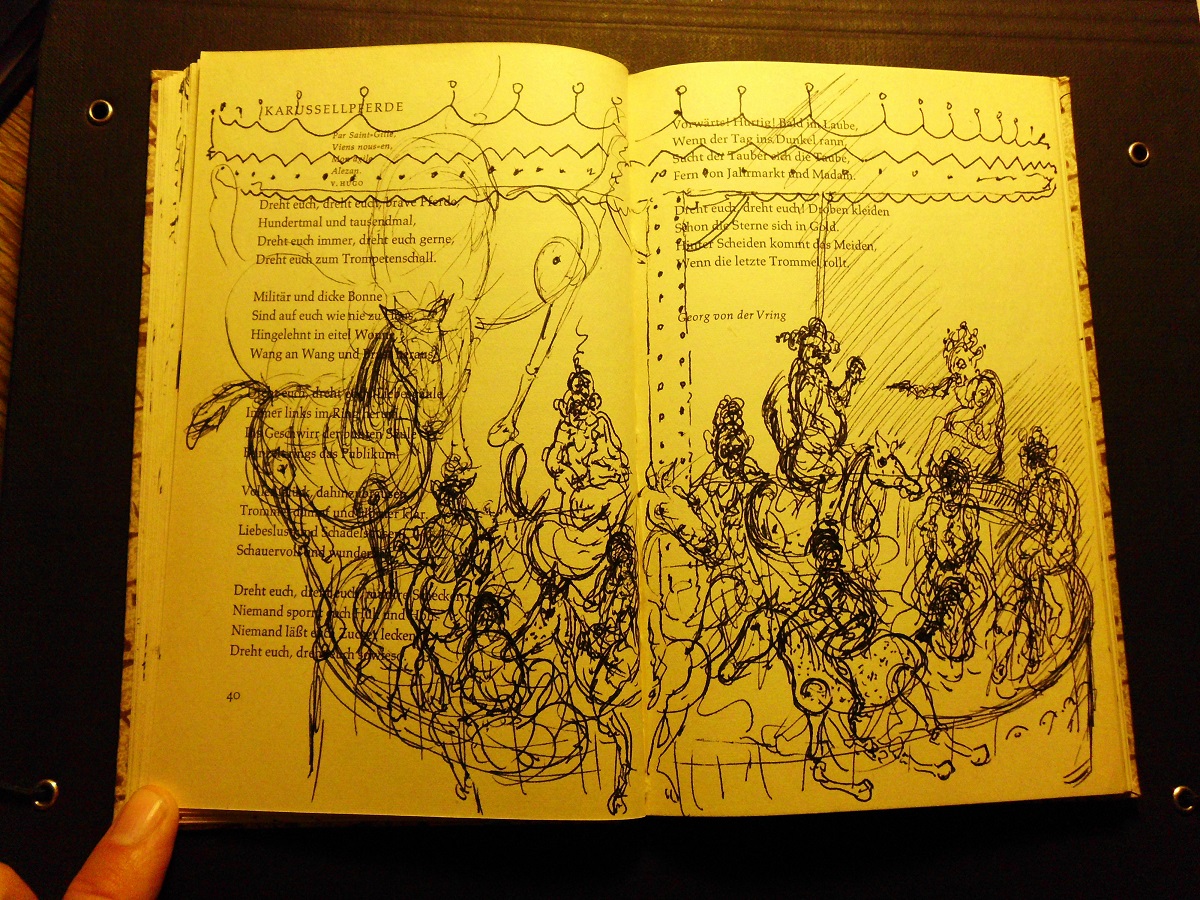 KARUSSELLPFERDE
Par Saint-Gille,
Viens nous-en,
Mon agile
Alezan.
V. HUGO
Dreht euch, dreht euch, brave Pferde,
Hundertmal und tausendmal,
Dreht euch immer, dreht euch gerne,
Dreht euch zum Trompetenschall.
Militär und dicke Bonne
Sind auf euch wie nie zu Haus,
Hingelehnt in eitel Wonne
Wang an Wang und Brust heraus!
Dreht euch, dreht euch,
Immer links im Ring herum,
Ins Geschwirr der bunten Säule
rings das Publikum.
Voller dahinzubrausen,
Trommel dumpf und klar,
Liebeslust und
Schauervoll und wunderbar.
Dreht euch, dreht euch, muntre Schecken,
Niemand spornt euch Hüh und Hott,
Niemand läßt euch Zucker lecken,
Dreht euch, dreht euch
40
Vorwärts! Hurtig! Bald im Laube,
Wenn der Tag ins Dunkel rann,
Sucht der Tauber sich die Taube,
Fern von Jahrmarkt und Madam.
Dreht euch, dreht euch! Droben kleiden
Schon die Sterne sich in Gold.
Hinter Scheiden kommt das Meiden,
Wenn die letzte Trommel rollt.
Georg von der Vring